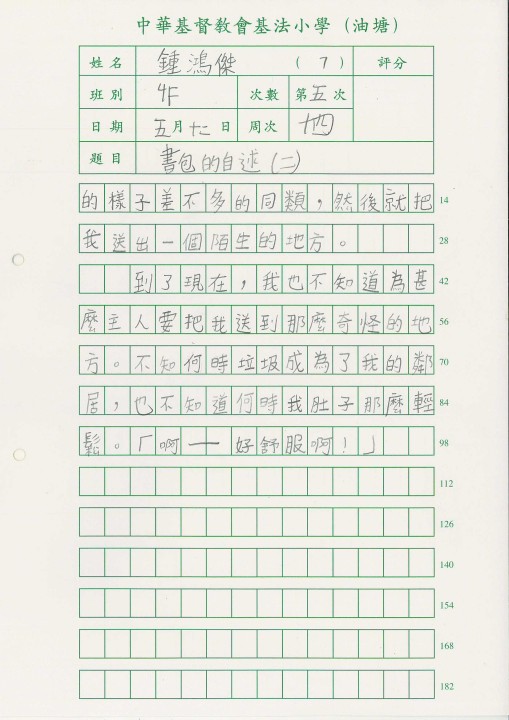 中華基督教會基法小學（油塘）
姓名 鍾鴻傑 （7） 評分
班別 4F 次數 第五次
日期 五月十二日 周次 十四
題目 書包的自述(二)
的樣子差不多的同類，然後就把 14
我送出一個陌生的地方。 28
到了現在，我也不知道為甚 42
麼主人要把我送到那麼奇怪的地 56
方。不知何時垃圾成為了我的鄰 70
居，也不知道何時我肚子那麼輕 84
鬆。「啊——好舒服啊！」 98
112
126
140
154
168
182